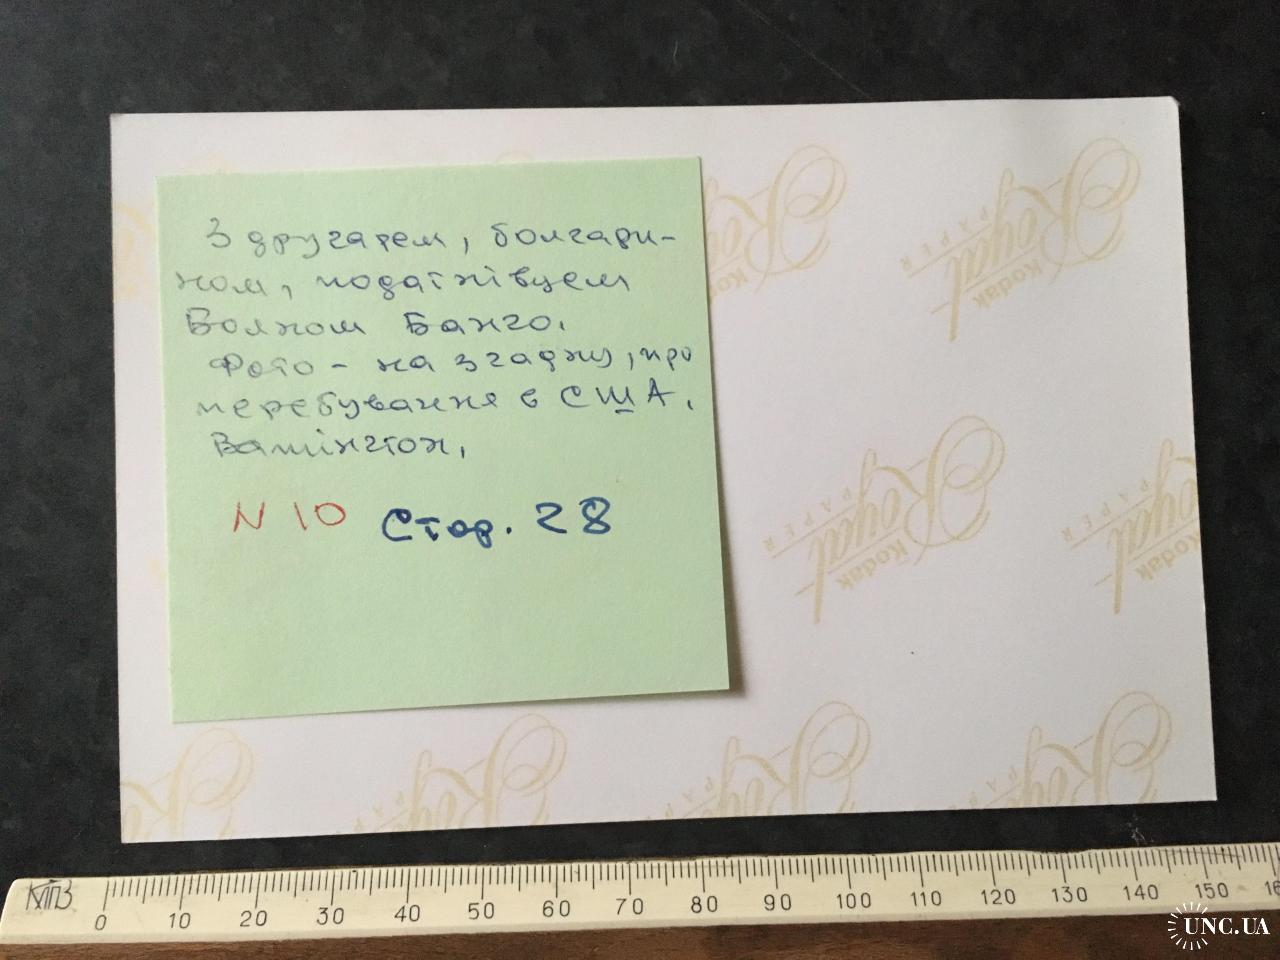 З другарем, болгари-
ном, податківцем
Волхом Банго.
Фото - на згадку, про
перебування в США.
Вашінгтон.
N 10 Стор. 28
Royal
PAPER
Kodak
Royal
PAPER
Kodak
Royal
PAPER
Kodak
Royal
PAPER
Kodak
КПВЗ
0 10 20 30 40 50 60 70 80 90 100 110 120 130 140 150
UNC.UA